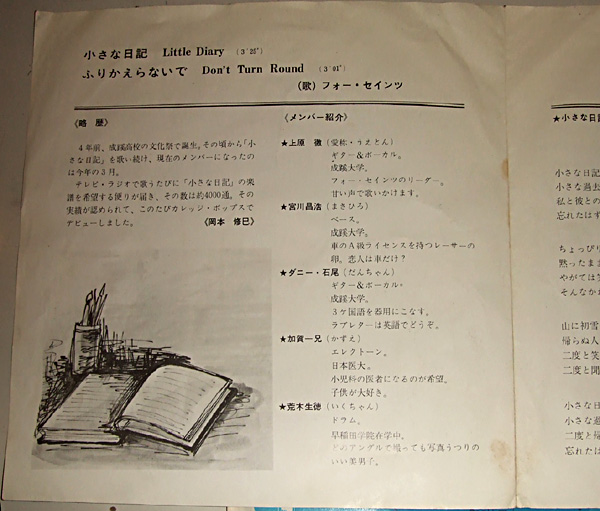 小さな日記 Little Diary (3′25″)
ふりかえらないで Don't Turn Round (3′01″)
(歌)フォー・セインツ
《略 歴》
4年前、成蹊高校の文化祭で誕生。その頃から「小
さな日記」を歌い続け、現在のメンバーになったの
は今年の3月。
テレビ・ラジオで歌うたびに「小さな日記」の楽
譜を希望する便りが届き、その数は約4000通。その
実績が認められて、このたびカレッジ・ポップスで
デビューしました。 《岡本 修巳》
《メンバー紹介》
★上原 徹(愛称・うえとん)
ギター&ボーカル。
成蹊大学。
フォー・セインツのリーダー。
甘い声で歌いかけます。
★宮川昌浩(まさひろ)
ベース。
成蹊大学。
車のA級ライセンスを持つレーサーの
卵。恋人は車だけ?
★ダニー・石尾(だんちゃん)
ギター&ボーカル・
成蹊大学。
3ケ国語を器用にこなす。
ラブレターは英語でどうぞ。
★加賀一兄(かずえ)
エレクトーン。
日本医大。
小児科の医者になるのが希望。
子供が大好き。
★荒木生徳(いくちゃん)
ドラム。
早稲田学院在学中。
どのアングルで撮っても写真うつりの
いい美男子。
★小さな日
小さな日記
小さな過去
私と彼との
忘れたはず
ちょっぴり
黙ったまま
やがては笑
そんなかオ
山に初雪
帰らぬ人
二度と笑
二度と開
小さな日
小さな過
二度と帰
忘れたは